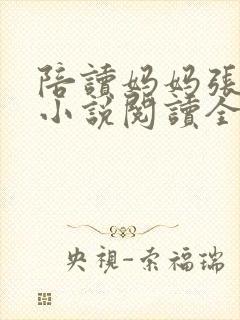 陪讀妈妈張
小説閱讀全
央視-索福瑞